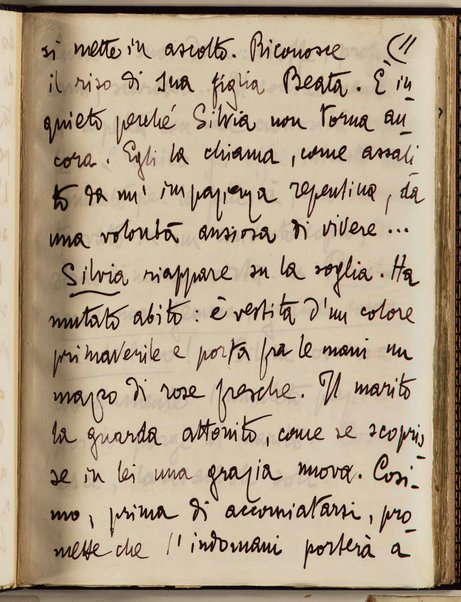 si mette in ascolto. Riconosce (11
il riso di sua figlia Beata. È in
quieto perché Silvia non torna an
cora. Egli la chiama, come assali
to da un' impazienza repentina, da
una volontà ansiosa di vivere...
Silvia riappare su la soglia. Ha
mutato abito: è vestita d'un colore
primaverile e porta fra le mani un
mazzo di rose fresche. Il marito
la guarda attonito, come se scopris
se in lei una grazia nuova. Cosi
mo, prima di accomiatarsi, pro
mette che l'indomani porterà a